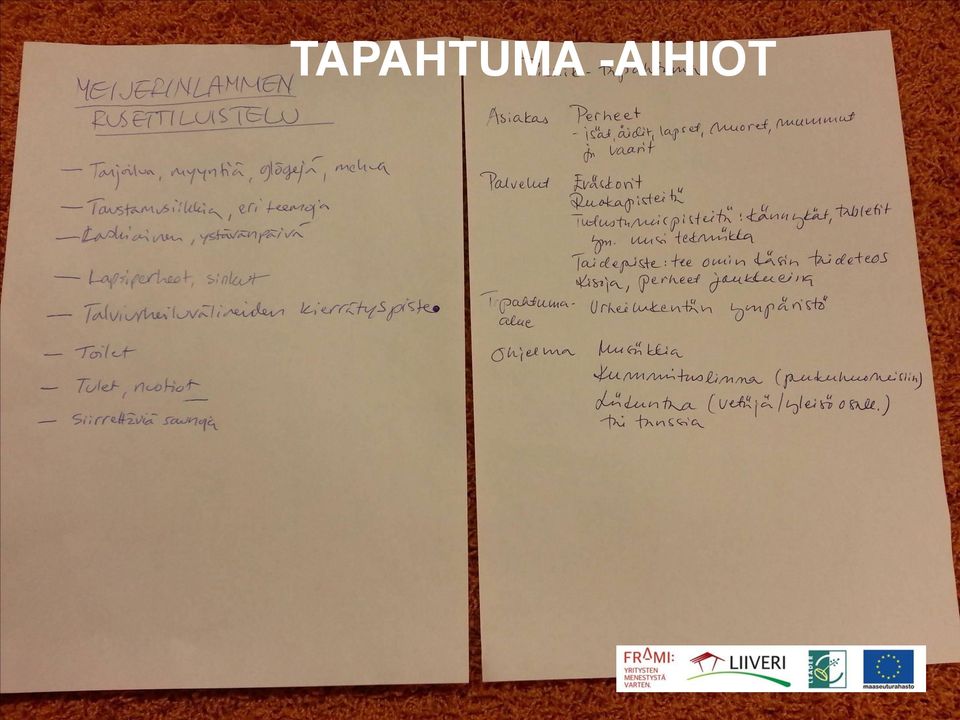 TAPAHTUMA -AIHIOT
MEIJERINLAMMEN
RUSETTILUISTELU
— Tarjoilua, myyntiä, glögejä, mehua
— Taustamusiikkia, eri teemoja
— Laskiainen, ystävänpäivä
— Lapsiperheet, sinkut
— Talviurheiluvälineiden kierrätyspiste
— Toilet
— Tulet, nuotiot
— Siirrettäviä saunoja
- Tapahtuma
Asiakas Perheet
- isät, äidit, lapset, nuoret, mummut
ja vaarit
Palvelut Eväskorit
Ruokapisteitä
Tutustumispisteitä: kännykät, tabletit
ym. uusi tekniikka
Taidepiste: tee omin käsin taideteos
Kisoja, perheet joukkueina
Tapahtuma- Urheilukentän ympäristö
alue
Ohjelma Musiikkia
Kummituslinna (pukuhuoneisiin)
Liikuntaa (vetäjä/yleisö osall.)
tai tanssia
FRAMI:
YRITYSTEN
MENESTYSTÄ
VARTEN.
LIIVERI
LEADER
maaseuturahasto